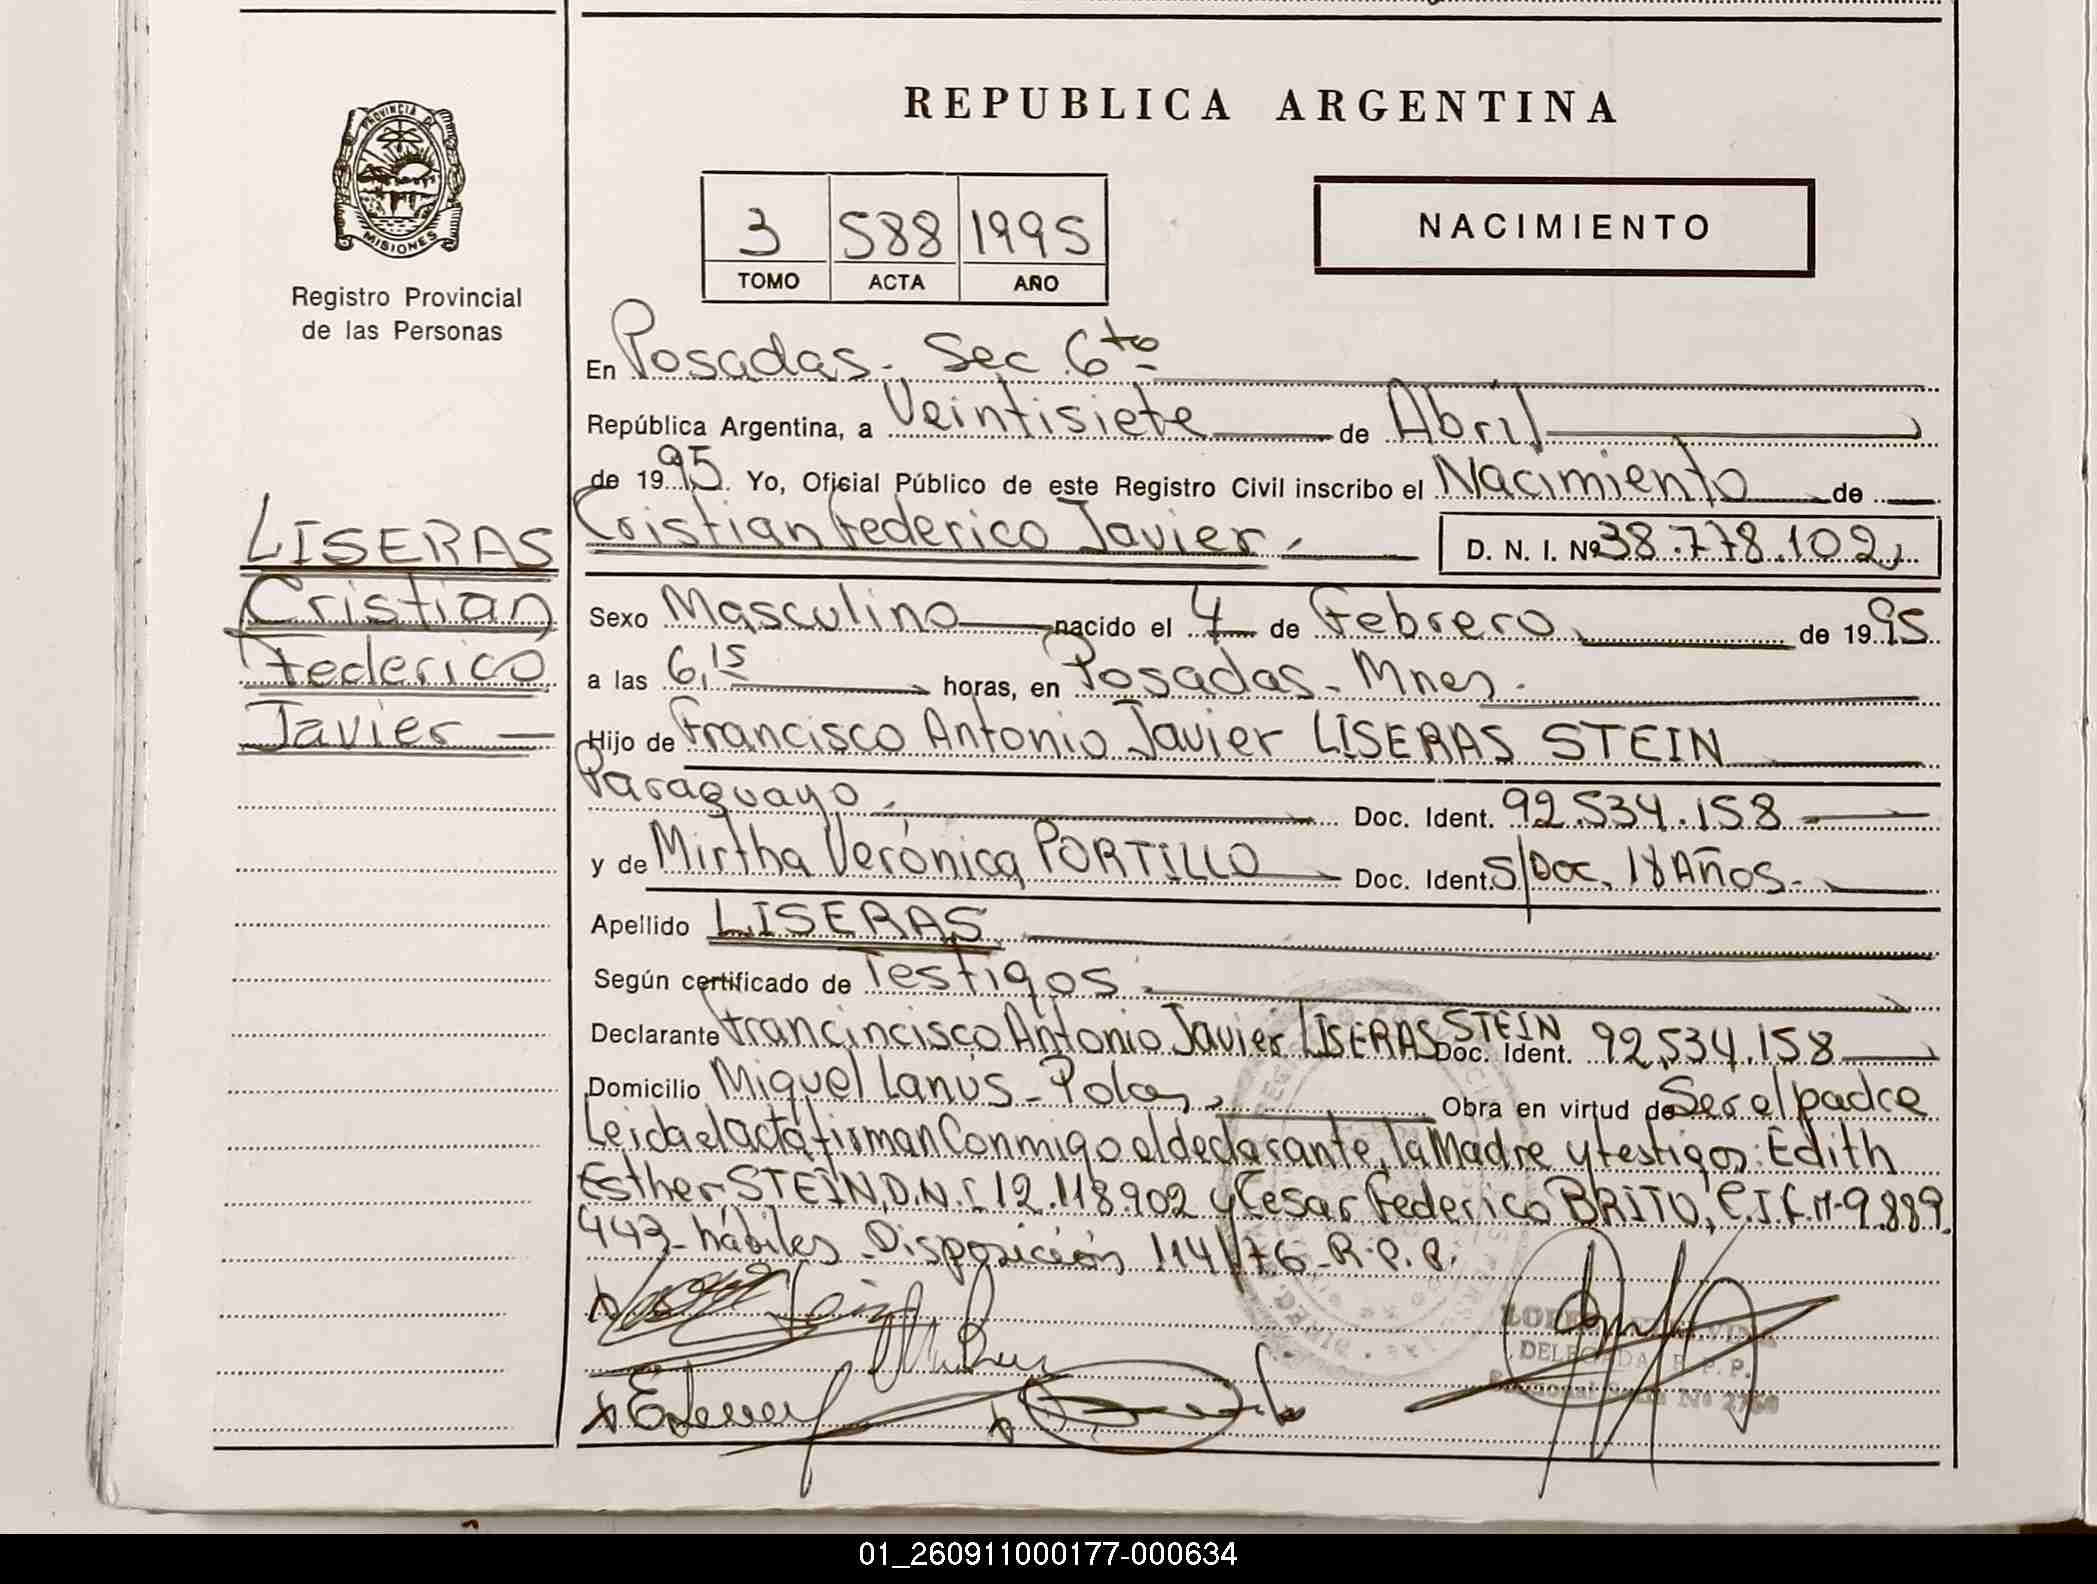 REPUBLICA ARGENTINA
PROVINCIA DE
MISIONES
Registro Provincial
de las Personas
3 588 1995
TOMO ACTA AÑO
NACIMIENTO
LISERAS
Cristian
Federico
Javier
En Posadas - Sec 6ta
República Argentina, a Veintisiete de Abril
de 1995. Yo, Oficial Público de este Registro Civil inscribo el Nacimiento de
Cristian Federico Javier D. N. I. Nº 38.778.102
Sexo Masculino nacido el 4 de Febrero de 1995
a las 6,15 horas, en Posadas - Mnes.
Hijo de Francisco Antonio Javier LISERAS STEIN
Paraguayo Doc. Ident. 92.534.158
y de Mirtha Verónica PORTILLO Doc. Ident. S/Doc. 18 Años.
Apellido LISERAS
Según certificado de Testigos
Declarante Francincisco Antonio Javier LISERAS STEIN Doc. Ident. 92.534.158
Domicilio Miguel Lanús - Pdas, Obra en virtud de Ser el padre
Leida el acta, firman Conmigo el declarante, la Madre y testigos: Edith
Esther STEIN, D.N.I 12.118.902 y Cesar Federico BRITO, 9.889.
443 - hábiles - Disposición 114/76 - R.P.P.
DELEGADA R. P. P.
Nº
01_260911000177-000634